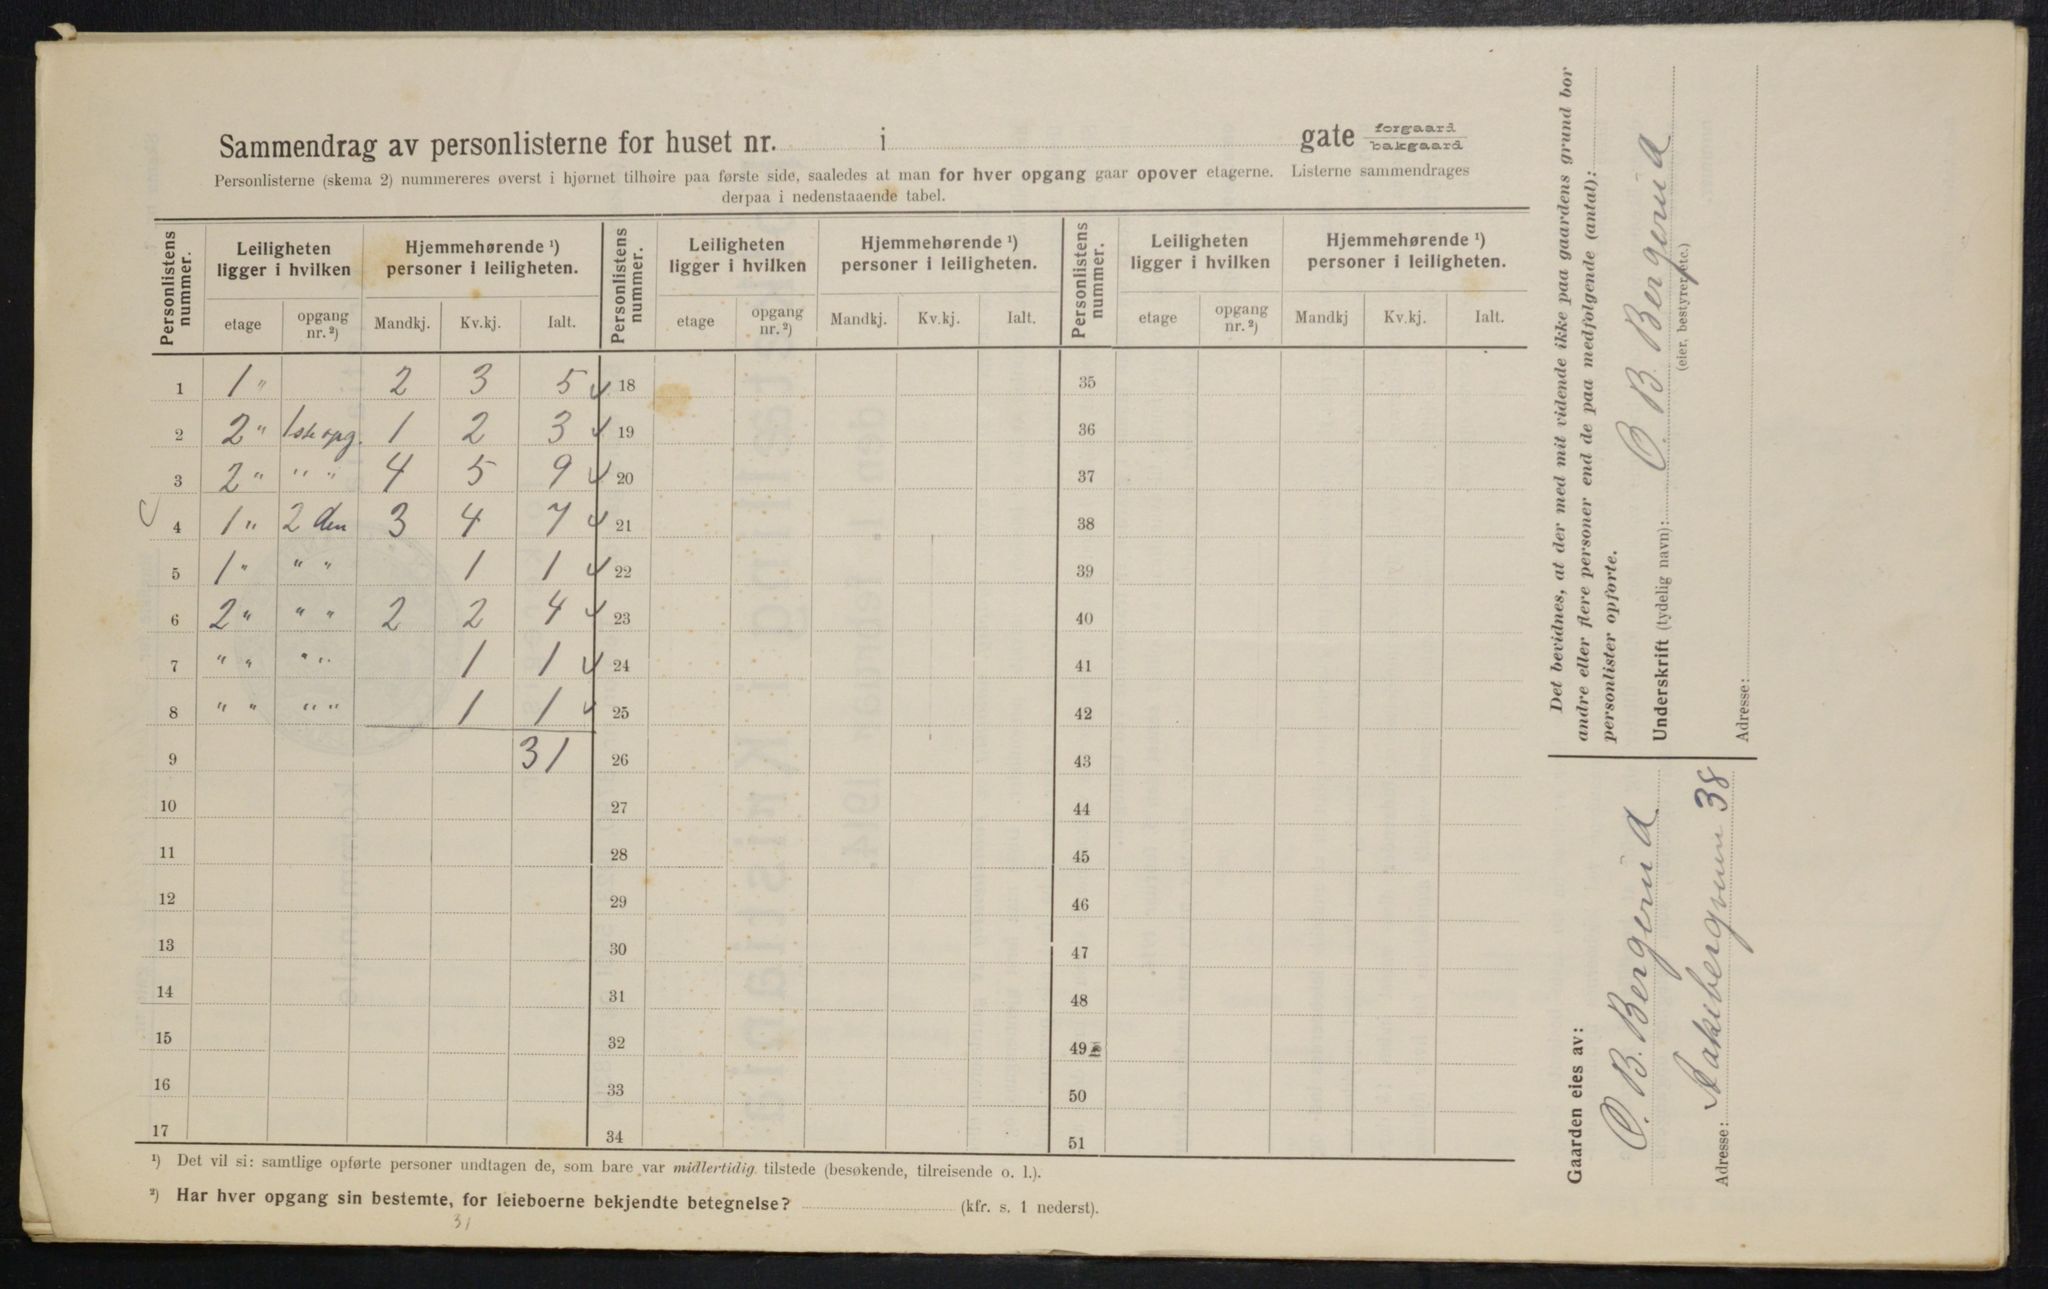 Sammendrag av personlisterne for huset nr. i gate forgaard bakgaard
Personlisterne (skema 2) nummereres øverst i hjørnet tilhøire paa første side, saaledes at man for hver opgang gaar opover etagerne. Listerne sammendrages
derpaa i nedenstaaende tabel.
Personlistens nummer. Leiligheten ligger i hvilken Hjemmehørende ¹) personer i leiligheten. Personlistens nummer. Leiligheten ligger i hvilken Hjemmehørende ¹) personer i leiligheten. Personlistens nummer. Leiligheten ligger i hvilken Hjemmehørende ¹) personer i leiligheten.
etage opgang nr.²) Mandkj. Kv.kj. Ialt. etage opgang nr.²) Mandkj. Kv.kj. Ialt. etage opgang nr.²) Mandkj Kv.kj. Ialt.
1 1 " 2 3 5 ✓ 18 35
2 2 " 1ste opg. 1 2 3 ✓ 19 36
3 2 " " " 4 5 9 ✓ 20 37
4 1 " 2 den 3 4 7 ✓ 21 38
5 1 " " " 1 1 ✓ 22 39
6 2 " " " 2 2 4 ✓ 23 40
7 " " " " 1 1 ✓ 24 41
8 " " " " 1 1 ✓ 25 42
9 31 26 43
10 27 44
11 28 45
12 29 46
13 30 47
14 31 48
15 32 49
16 33 50
17 34 51
¹) Det vil si: samtlige opførte personer undtagen de, som bare var midlertidig tilstede (besøkende, tilreisende o. l.).
²) Har hver opgang sin bestemte, for leieboerne bekjendte betegnelse? (kfr. s. 1 nederst).
31
Det bevidnes, at der med mit vidende ikke paa gaardens grund bor
andre eller flere personer end de paa medfølgende (antal):
personlister opførte.
Underskrift (tydelig navn): O. B. Bergerud
(eier, bestyrer etc.)
Adresse:
Gaarden eies av:
O. B. Bergerud
Adresse: Aakebergveien 38